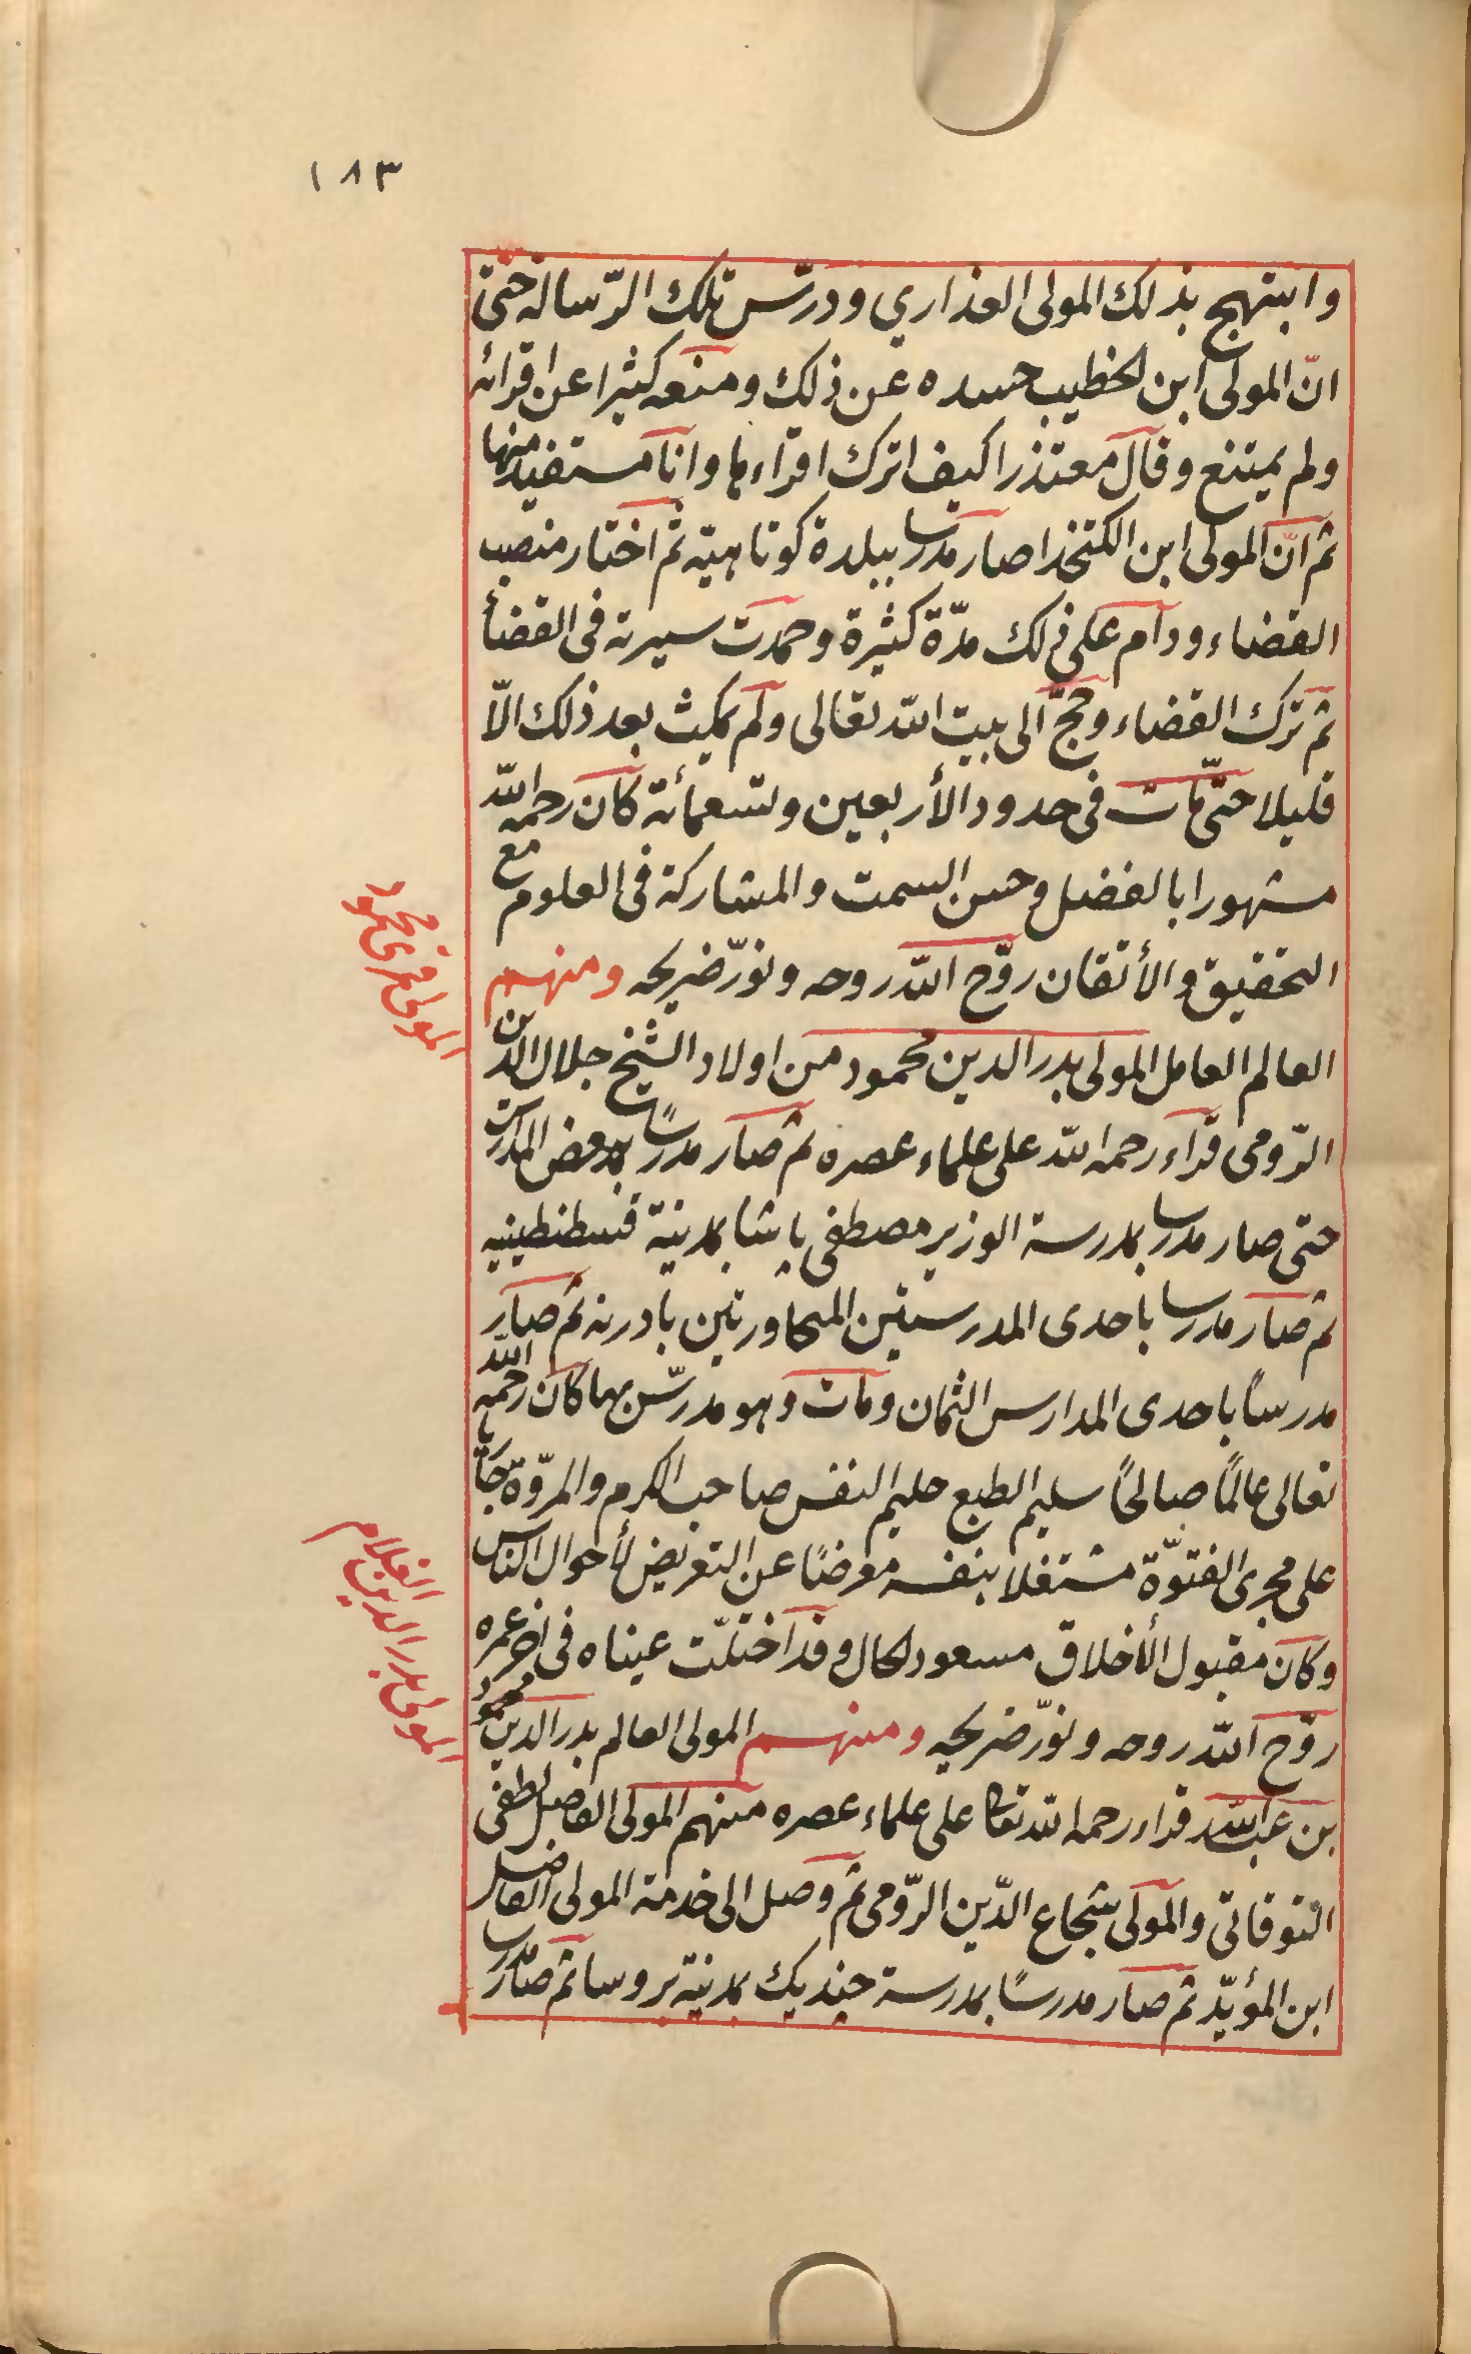 ١٨٣
وابتهج بذلك المولى العذاري ودرّس تلك الرّسالة حتى
انّ المولى ابن الخطيب حسده عن ذلك ومنعه كثيرا عن اقرائه
ولم يمتنع وقال معتذرا كيف اترك اقراءها وانا مستفيد منها
ثم انّ المولى ابن الكتخدا صار مدرسا ببلدة كوتاهيّه ثم اختار منصب
القضاء ودام على ذلك مدّة كثيرة وحمدت سيرته فى القضأ
ثم ترك القضاء وحجّ الى بيت الله تعالى ولم يمكث بعد ذلك الاّ
قليلا حتّى مات فى حدود الأربعين وتسعمائة كان رحمه الله
مشهورا بالفضل وحسن السمت والمشاركة فى العلوم مع
التحقيق والأتقان روّح الله روحه ونوّر ضريحه ومنهم
العالم العامل المولى بدر الدين محمود من اولاد الشيخ جلال الدين
الرّومى قراء رحمه الله على علماء عصره ثم صار مدرسًا ببعض المدارس
حتى صار مدرسا بمدرسة الوزير مصطفى پاشا بمدينة قسطنطينيه
ثم صار مدرسا باحدى المدرستين المتجاورتين بادرنه ثم صار
مدرسًا باحدى المدارس الثمان ومات وهو مدرّس بها كان رحمه الله
تعالى عالمًا صالحًا سليم الطبع حليم النفس صاحب الكرم والمروّة جاريا
على مجرى الفتوّة مشتغلا بنفسه معرضًا عن التعريض لأحوال الناس
وكان مقبول الأخلاق مسعود الحال وقد اختلّت عيناه فى اخر عمره
روّح الله روحه ونوّر ضريحه ومنهم المولى العالم بدر الدين محمود
بن عبد الله قراء رحمه الله تعا على علماء عصره منهم المولى الفاضل لطفى
التوقاتى والمولى شجاع الدّين الرّومى ثم وصل الى خدمة المولى الفاضل
ابن المؤيّد ثم صار مدرسًا بمدرسة جنديك بمدينة بروسا ثم صار مدرسا
المولى محمود
المولى بدر الدين الغلام